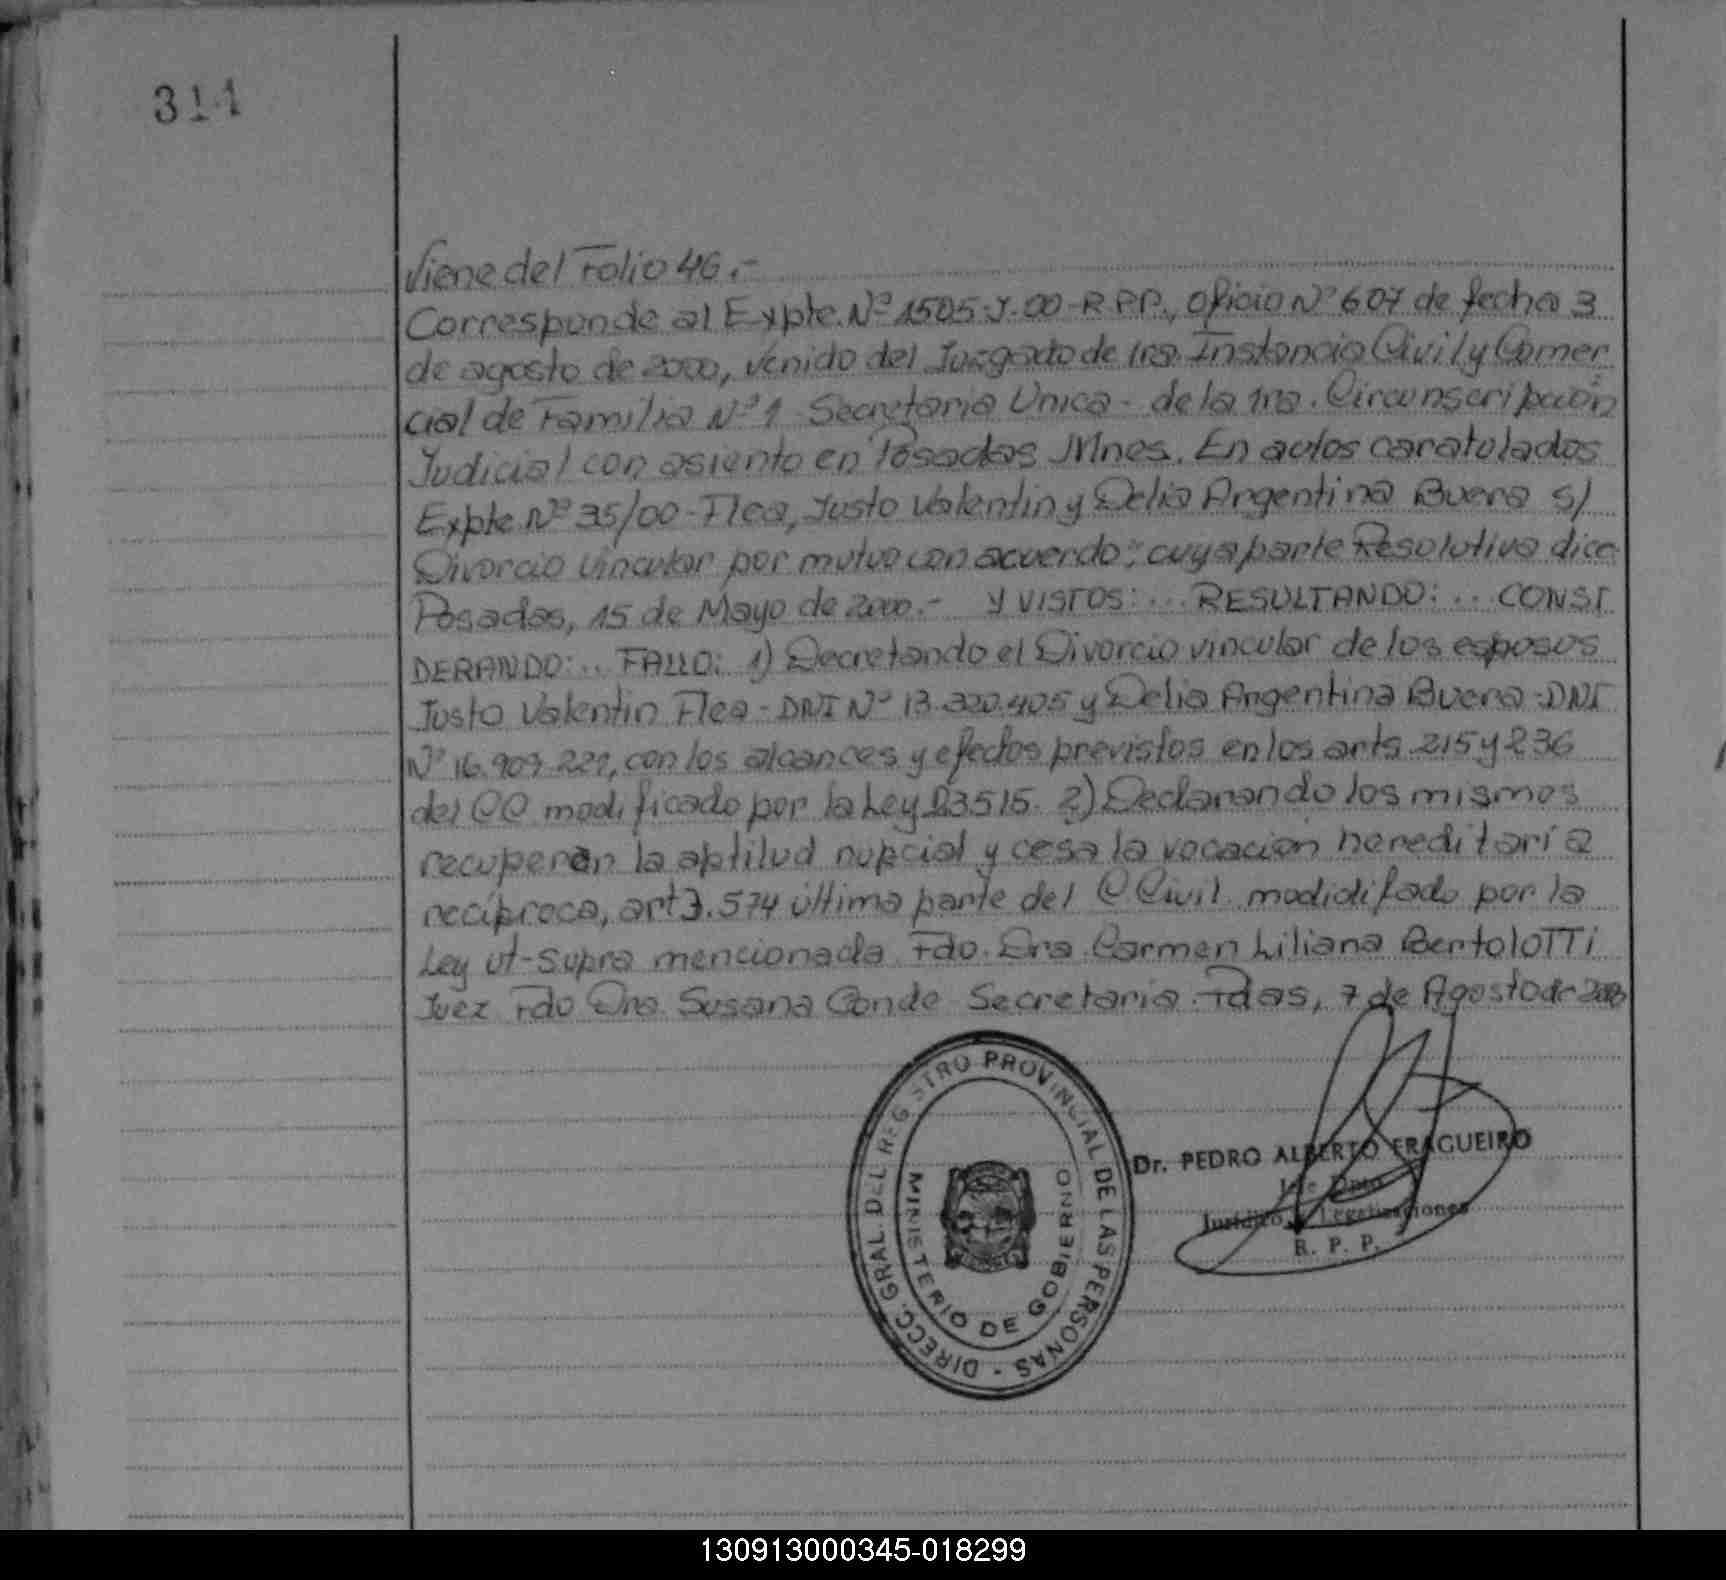 311
Viene del Folio 46.-
Corresponde al Expte. Nº 1505-J-00-R.P.P., Oficio Nº 607 de fecha 3
de agosto de 2000, venido del Juzgado de 1ra. Instancia Civil y Comer
cial de Familia Nº 1 Secretaria Unica - de la 1ra. Circunscripción
Judicial con asiento en Posadas Mnes. En autos caratulados
Expte Nº 35/00 - Flea, Justo Valentin y Delia Argentina Buera s/
Divorcio vincular por mutuo con acuerdo; cuya parte Resolutiva dice
Posadas, 15 de Mayo de 2000.- Y VISTOS: ... RESULTANDO: .. CONSI
DERANDO: .. FALLO: 1) Decretando el Divorcio vincular de los esposos
Justo Valentin Flea - DNI Nº 13.320.405 y Delia Argentina Buera - DNI
Nº 16.909.221, con los alcances y efectos previstos en los arts. 215 y 236
del CC modificado por la Ley 23515. 2) Declarando los mismos
recuperan la aptitud nupcial y cesa la vocación hereditaria
recíproca, art 3.574 última parte del C Civil. modidifado por la
Ley ut-supra mencionada. Fdo. Dra. Carmen Liliana BertoloTTi
Juez Fdo Dra. Susana Conde Secretaria. Pdas, 7 de Agosto de 2000
DIRECC. GRAL. DEL REGISTRO PROVINCIAL DE LAS PERSONAS -
MINISTERIO DE GOBIERNO
Dr. PEDRO ALBERTO FRAGUEIRO
Jefe Dpto
Jurídico y Legalizaciones
R. P. P.
130913000345-018299